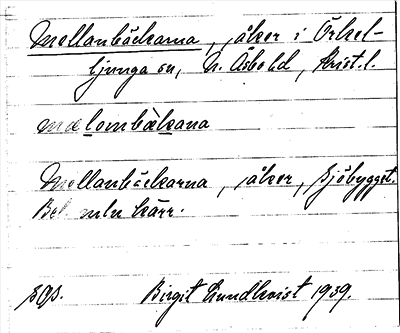 Mellanbäckarna, åker i Örkel-
ljunga sn, N. Åsbohd, Krist. l.
mælombækana
Mellanbäckarna, åker, Sjöbygget.
Bel. mln kärr.
Birgit Lundkvist 1939.